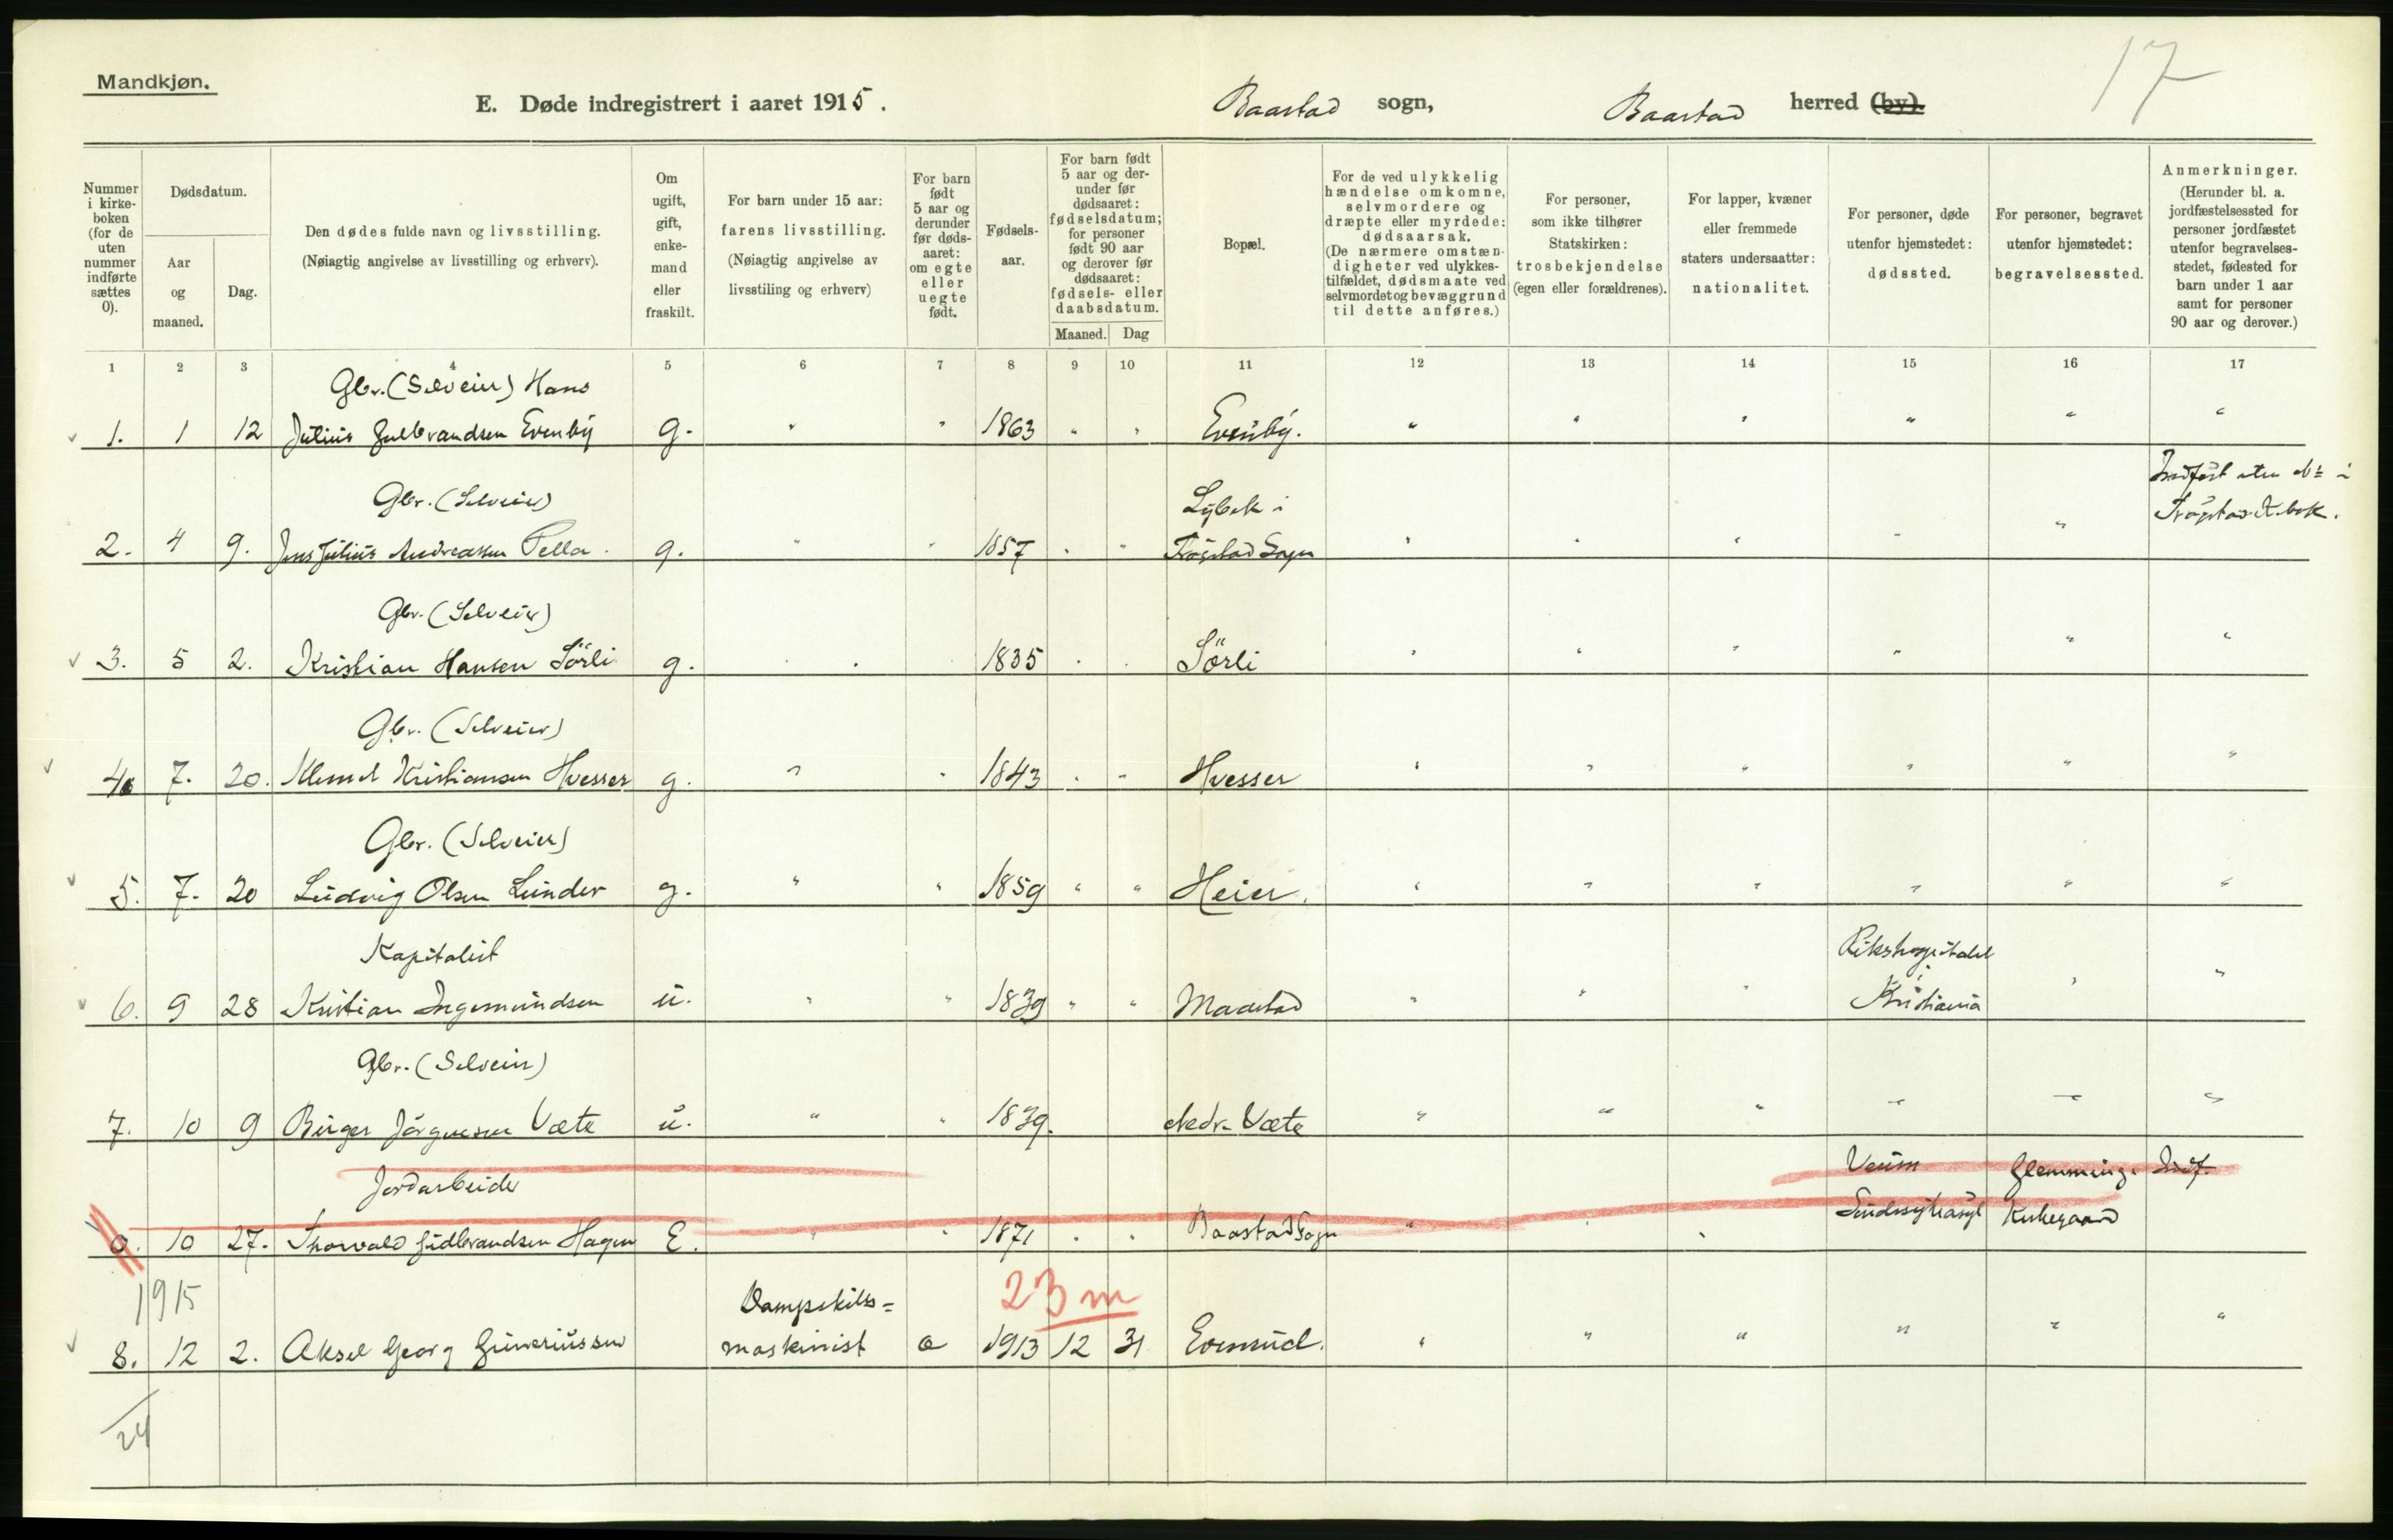 Mandkjøn.
17
E. Døde indregistrert i aaret 1915.
Baastad sogn, Baastad herred (by).
Nummer i kirkeboken (for de uten nummer indførte sættes 0).
Dødsdatum.
Aar og maaned.
Dag.
Den dødes fulde navn og livsstilling.
(Nøiagtig angivelse av livsstilling og erhverv).
Om ugift, gift, enkemand eller fraskilt.
For barn under 15 aar: farens livsstilling.
(Nøiagtig angivelse av livsstiling og erhverv)
For barn født 5 aar og derunder før dødsaaret: om egte eller uegte født.
Fødselsaar.
For barn født 5 aar og derunder før dødsaaret: fødselsdatum; for personer født 90 aar og derover før dødsaaret: fødsels- eller daabsdatum.
Maaned. Dag
Bopæl.
For de ved ulykkelig hændelse omkomne, selvmordere og dræpte eller myrdede: dødsaarsak.
(De nærmere omstændigheter ved ulykkestilfældet, dødsmaate ved selvmordet og bevæggrund til dette anføres.)
For personer, som ikke tilhører Statskirken: trosbekjendelse (egen eller forældrenes).
For lapper, kvæner eller fremmede staters undersaatter: nationalitet.
For personer, døde utenfor hjemstedet: dødssted.
For personer, begravet utenfor hjemstedet: begravelsessted.
Anmerkninger.
(Herunder bl. a. jordfæstelsessted for personer jordfæstet utenfor begravelsesstedet, fødested for barn under 1 aar samt for personer 90 aar og derover.)
1 2 3 4 5 6 7 8 9 10 11 12 13 14 15 16 17
Gbr. (Selveier) Hans
1. 1 12 Julius Gulbrandsen Evenby g. " " 1863 " " Evenby. " " " " " "
Gbr. (Selveier) Lybek i Indført uten No i
2. 4 9. Jens Julius Andreasen Pella. g. " " 1857 " " Trøgstad Sogn " " " " " Trøgstad K.bok.
Gbr. (Selveier)
3. 5 2. Kristian Hansen Sörli g. 1835 Sörli " " " " " "
Gbr. (Selveier)
4. 7. 20. Kristiansen Hvesser g. " " 1843 " " Hvesser " " " " " "
Gbr. (Selveier)
5. 7. 20 Ludvig Olsen Lunder g. " " 1859 " " Heier. " " " " " "
Kapitalist Rikshospitalet i
6. 9 28 Kristian Ingemundsen u. " " 1839 " " Maastad " " " Kristiania " "
Gbr. (Selveier)
7. 10 9 Birger Jörgensen Væte u. " " 1839. Nedr. Væte " " " " " "
Jordarbeider Veum Glemminge Indf.
0. 10 27. Thorvald Gudbrandsen Hagen E. " " 1871 " " Baastad Sogn " " " Sindssykeasyl Kirkegaard
1915 Dampskibs= 23 m
8. 12 2. Aksel Georg maskinist e 1913 12 31 " " " " " "
24